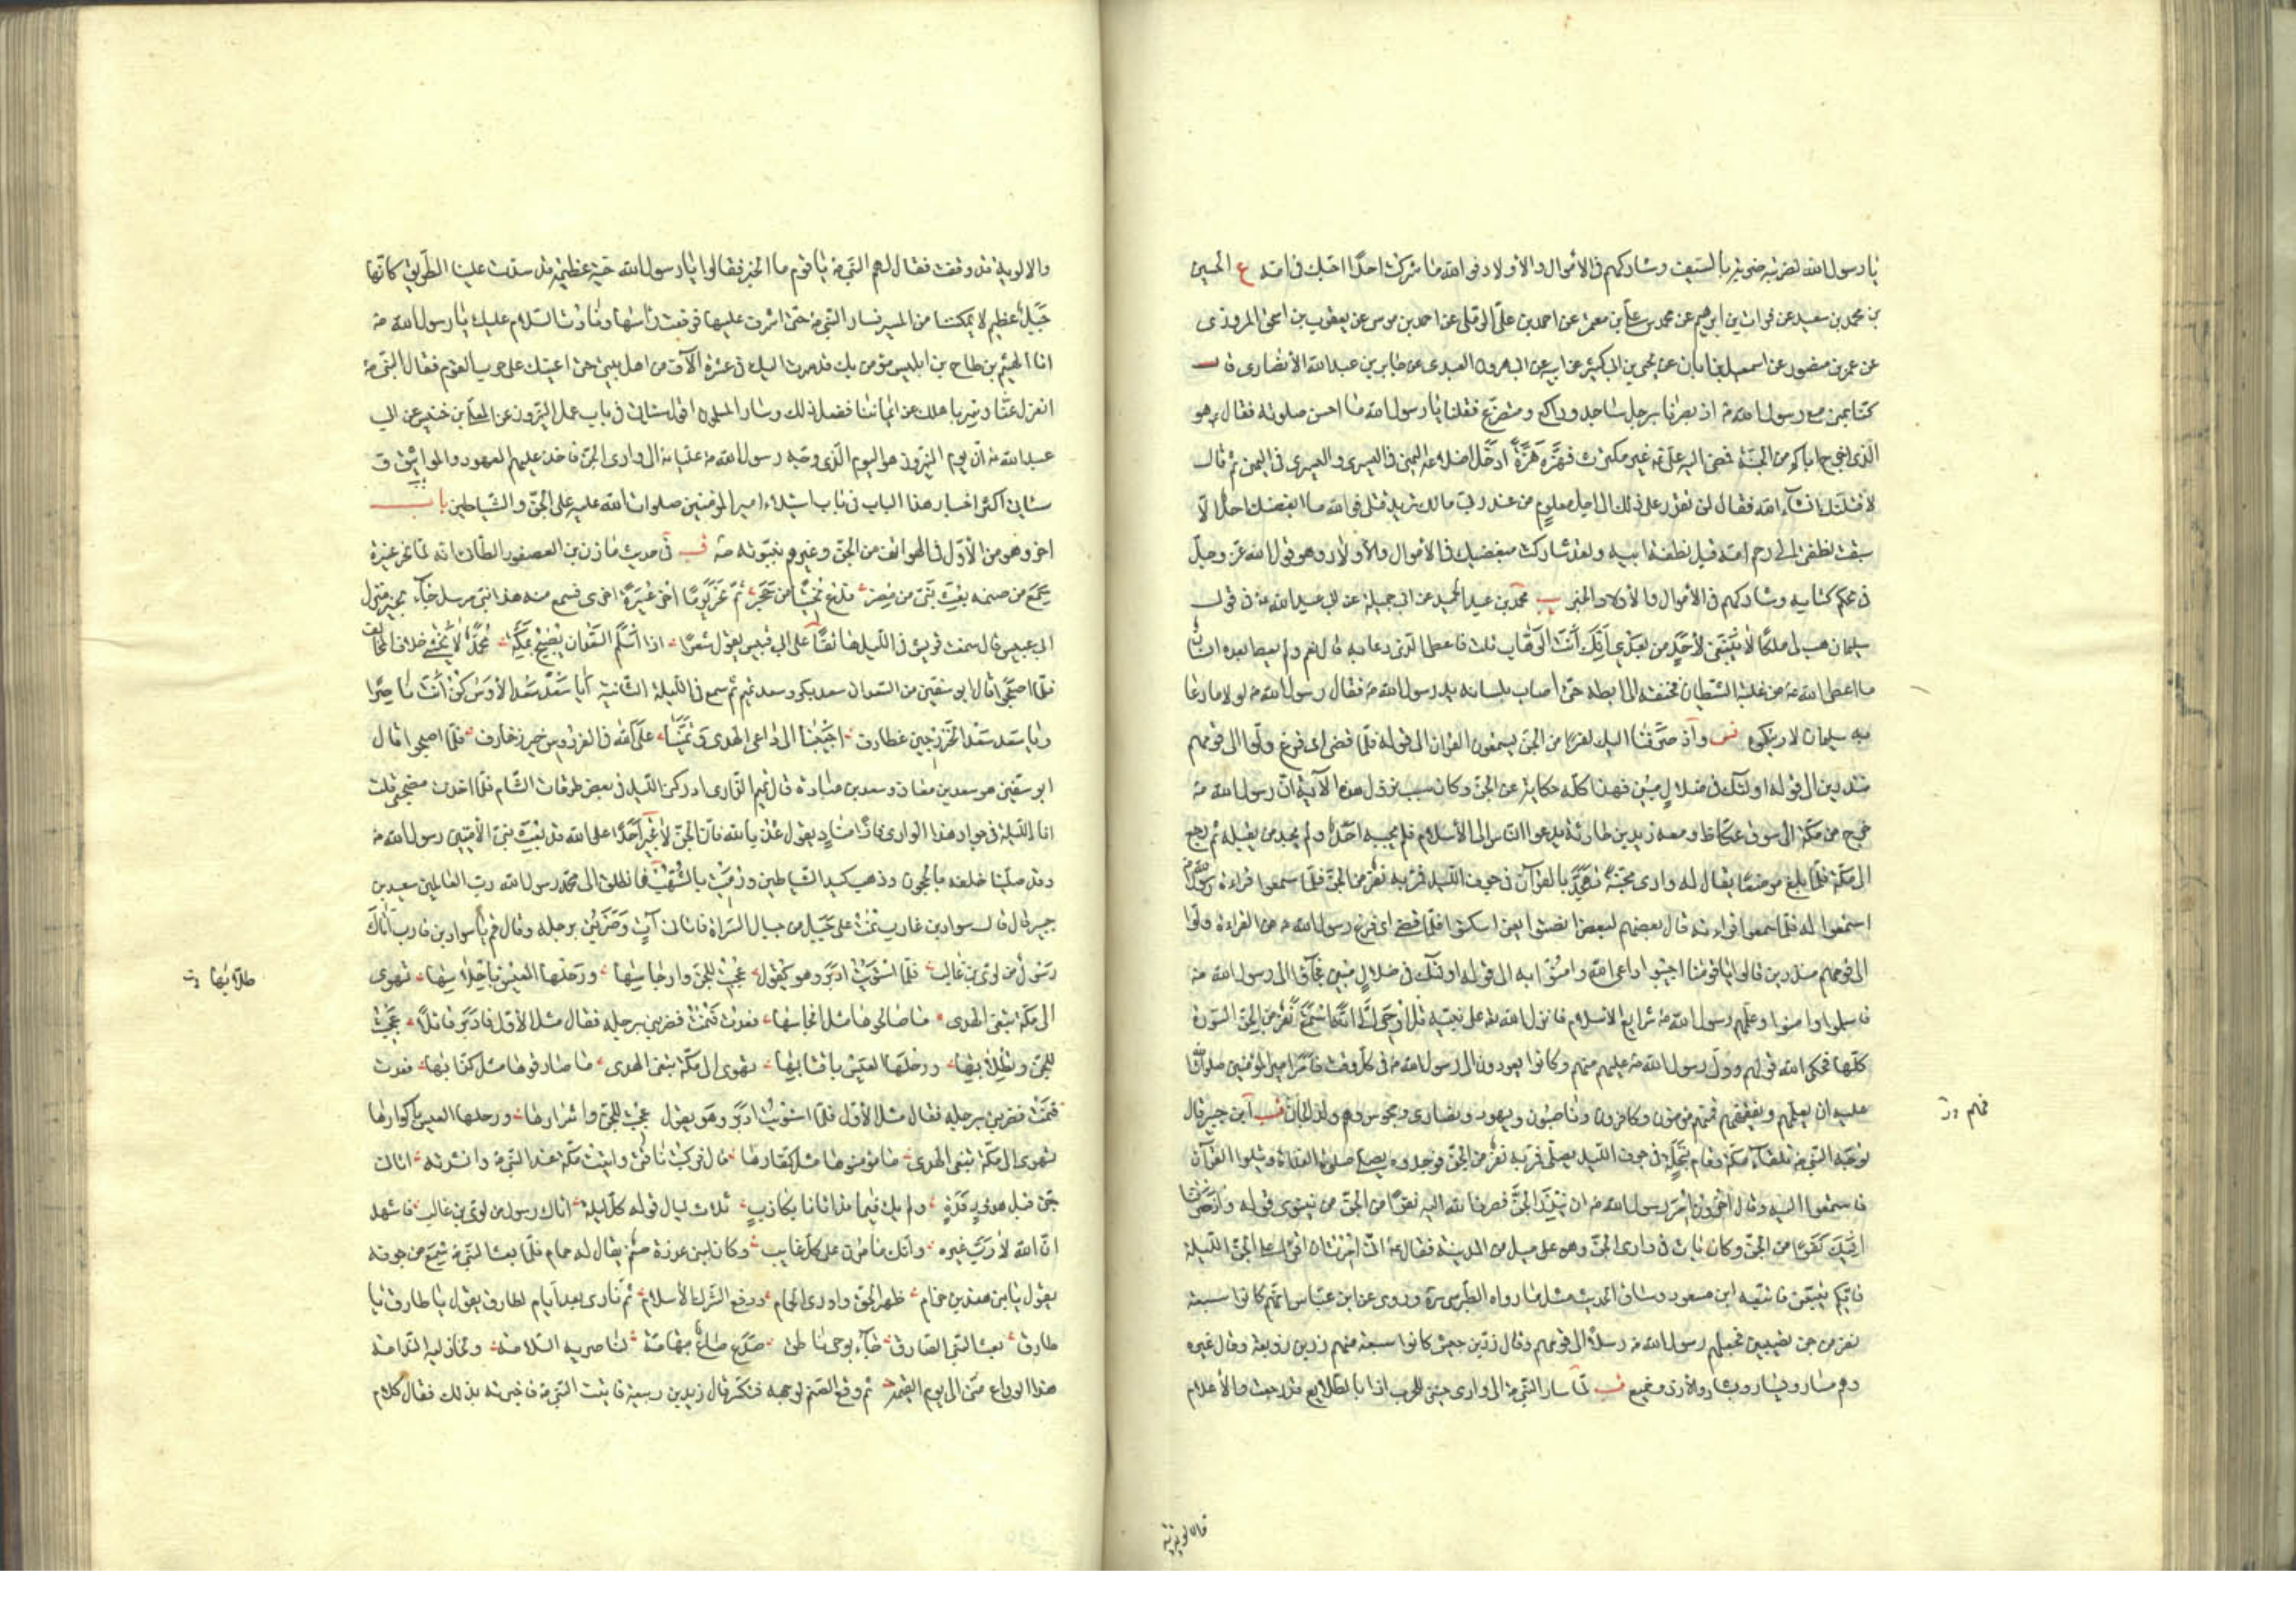 يا رسول الله لضربته ضربة بالسيف وشاركهم في الأموال والأولاد فوالله ما شركت احدا احبك في امه ع الحسين
بن محمد بن سعيد عن فرات بن ابرهيم عن محمد بن علي بن معمر عن احمد بن علي الرملي عن احمد بن موسى عن يعقوب بن اسحق المروزي
عن عمر بن منصور عن اسمعيل بن ابان عن يحيى بن ابي كثير عن ابيه عن ابي هرون العبدي عن جابر بن عبد الله الأنصاري قال
كنا بمنى مع رسول الله ص اذ بصرنا برجل ساجد وراكع ومتضرع فقلنا يا رسول الله ما احسن صلوته فقال ص هو
الذي اخرج اباكم من الجنة فمضى اليه علي ع غير مكترث فهزه هزة ادخل اضلاعه اليمنى في اليسرى واليسرى في اليمنى ثم قال
لاقتلنك ان شاء الله فقال لن تقدر على ذلك الى اجل معلوم من عند ربي مالك تريد قتلي فوالله ما ابغضك احد الا
سبقت نطفتي الى رحم امه قبل نطفة ابيه ولقد شاركت مبغضيك في الاموال والاولاد وهو قول الله عز وجل
في محكم كتابه وشاركهم في الأموال والأولاد الخبر ب محمد بن عبد الحميد عن ابي جميلة عن ابي عبد الله ع في قول
سليمان هب لي ملكا لا ينبغي لأحد من بعدي انك انت الوهاب قلت فاعطي الذي دعا به قال نعم ولم يعط بعده انسان
ما اعطي الله من غلبة الشيطان فخنقه الى ابطه حتى اصاب بلسانه يد رسول الله ص فقال رسول الله ص لولا ما دعا
به سليمان لاريتكموه فس واذ صرفنا اليك نفرا من الجن يستمعون القران الى قوله فلما قضى اى فرغ ولوا الى قومهم
منذرين الى قوله اولئك في ضلال مبين فهذا كله حكاية عن الجن وكان سبب نزول هذه الآية ان رسول الله ص
خرج من مكة الى سوق عكاظ ومعه زيد بن حارثة يدعو الناس الى الأسلام فلم يجبه احد ولم يجد من يقبله ثم رجع
الى مكة فلما بلغ موضعا يقال له وادى مجنة تهجد بالقرآن في جوف الليل فمر به نفر من الجن فلما سمعوا قراءة رسول الله ص
استمعوا له فلما سمعوا قراءته قال بعضهم لبعض انصتوا يعني اسكتوا فلما قضى اى فرغ رسول الله ص من القراءة ولوا
الى قومهم منذرين قالوا يا قومنا اجيبوا داعي الله وامنوا به الى قوله اولئك في ضلال مبين فجاؤا الى رسول الله ص
فاسلموا وامنوا وعلمهم رسول الله ص شرايع الاسلام فانزل الله على نبيه قل اوحي الي انه استمع نفر من الجن السورة
كلها فحكى الله قولهم وولى رسول الله ص عليهم منهم وكانوا يعودون الى رسول الله ص في كل وقت فامر امير المؤمنين صلوات الله
عليه ان يعلمهم ويفقههم فمنهم مؤمنون وكافرون وناصبون ويهود ونصارى ومجوس وهم ولد الجان قب ابن جبير قال
توجه النبي ص تلقاء مكة وقام بنخلة في جوف الليل يصلي فمر به نفر من الجن فوجدوه يصلي صلوة الغداة ويتلوا القرآن
فاستمعوا اليه وقال اخرون امر رسول الله ص ان ينذر الجن فصرف الله اليه نفرا من الجن من نينوى قوله واذ صرفنا
اليك نفرا من الجن وكان بات في وادى الجن وهو على ميل من المدينة فقال ع اني امرت ان اقرأ على الجن الليلة
فايكم يتبعني فاتبعه ابن مسعود وساق الحديث مثل ما رواه الطبرسي ره وروى عن ابن عباس انهم كانوا سبعة
نفر من جن نصيبين فجعلهم رسول الله ص رسلا الى قومهم وقال زر بن حبيش كانوا سبعة منهم زوبعة وقال غيره
وهم مسار ويسار وبشار والأزد وخميع قب لما سار النبي ص الى وادى حنين للحرب اذا بالطلايع قد رجعت والأعلام
فمنهم
والالوية قد وقفت فقال لهم النبي ص يا قوم ما الخبر فقالوا يا رسول الله حية عظيمة قد سدت علينا الطريق كانها
جبل عظيم لا يمكننا من المسير فسار النبي ص حتى اشرف عليها فرفعت رأسها ونادت السلام عليك يا رسول الله ص
انا الهيثم بن طاح بن ابليس مؤمن بك قد سرت اليك في عشرة الآف من اهل بيتي حتى اعينك على حرب القوم فقال النبي ص
انعزل عنا وسر باهلك عن ايماننا ففعل ذلك وسار المسلمون اقول سيأتي في باب عمل النيروز عن المعلى بن خنيس عن ابي
عبد الله ع ان يوم النيروز هو اليوم الذي وجه رسول الله ص عليا ع الى وادى الجن فاخذ عليهم العهود والمواثيق و
سيأتي اكثر اخبار هذا الباب في باب استيلاء امير المؤمنين صلوات الله عليه على الجن والشياطين باب
اخر وهو من الأول في الهواتف من الجن وغيرهم بنبوته ص قب في حديث مازن بن العصفور الطائى انه لما نحر عتيرة
سمع من صنمه بعث نبي من مضر فدع نحيتا من حجر ثم نحر يوما اخر عتيرة اخرى فسمع منه هذا نبي مرسل جاء بخير منزل
ابي عبيس قال سمعت قريش في الليل هاتفا على ابي قبيس يقول شعرا اذا اسلم السعدان يصبح بمكة محمد لا يخشى خلاف المخالف
فلما اصبحوا قال ابو سفين من السعدان سعد بكر وسعد تميم ثم سمع في الليلة الثانية ايا سعد سعد الأوس كن انت ناصرا
ويا سعد سعد الخزرجين غطارف اجيبا الى داعي الهدى وتمنيا على الله في الفردوس خير زخارف فلما اصبحوا قال
ابو سفين هو سعد بن معاذ وسعد بن عبادة قال تميم الداري ادركني الليل في بعض طرقات الشام فلما اخذت مضجعي قلت
انا الليلة في جوار هذا الوادى فاذا مناد يقول عذ بالله فان الجن لا تجير احدا على الله قد بعث نبي الأميين رسول الله ص
وقد صلينا خلفه بالحجون وذهب كيد الشياطين ورميت بالشهب فانطلق الى محمد رسول الله رب العالمين سعيد بن
جبير قال قال سواد بن قارب نمت على جبل من جبال السراة فاتاني آت وضربني برجله وقال قم يا سواد بن قارب اتاك
رسول من لوى بن غالب فلما استويت ادبر وهو يقول عجبت للجن وارجاسها ورحلها العيس باحلاسها تهوى
الى مكة تبغي الهدى ما صالحوها مثل انجاسها فعدت فنمت فضربني برجله فقال مثل الأول فادبر قائلا عجبت
للجن وتطلابها ورحلها العيس باقتابها تهوى الى مكة تبغي الهدى ما صادقوها مثل كذابها فعدت
طلابها
فنمت فضربني برجله فقال مثل الأول فلما استويت ادبر وهو يقول عجبت للجن واشرارها ورحلها العيس باكوارها
تهوى الى مكة تبغي الهدى ما مؤمنوها مثل كفارها قال فركبت ناقتي واتيت مكة عند النبي ص وانشدته اتاني
جن قبل هدء ورقدة ولم يك فيما قد اتانا بكاذب ثلاث ليال قوله كل ليلة اتاك رسول من لوى بن غالب فاشهد
ان الله لا رب غيره وانك مأمون على كل غايب وكان لبني عذرة صنم يقال له حمام فلما بعث النبي ص سمع من جوفه
يقول يا بن هند بن حرام ظهر الحق واودى الحمام ودفع الشرك الأسلام ثم نادى بعد ايام لطارق يقول يا طارق يا
طارق بعث النبي الصادق جاء بوحي ناطق صدع صادع بتهامة لناصريه السلامة ولخاذليه الندامة
هذا الوداع مني الى يوم القيمة ثم وقع الصنم لوجهه فتكسر قال زيد بن ربيعة فاتيت النبي ص فاخبرته بذلك فقال كلام
والالوية